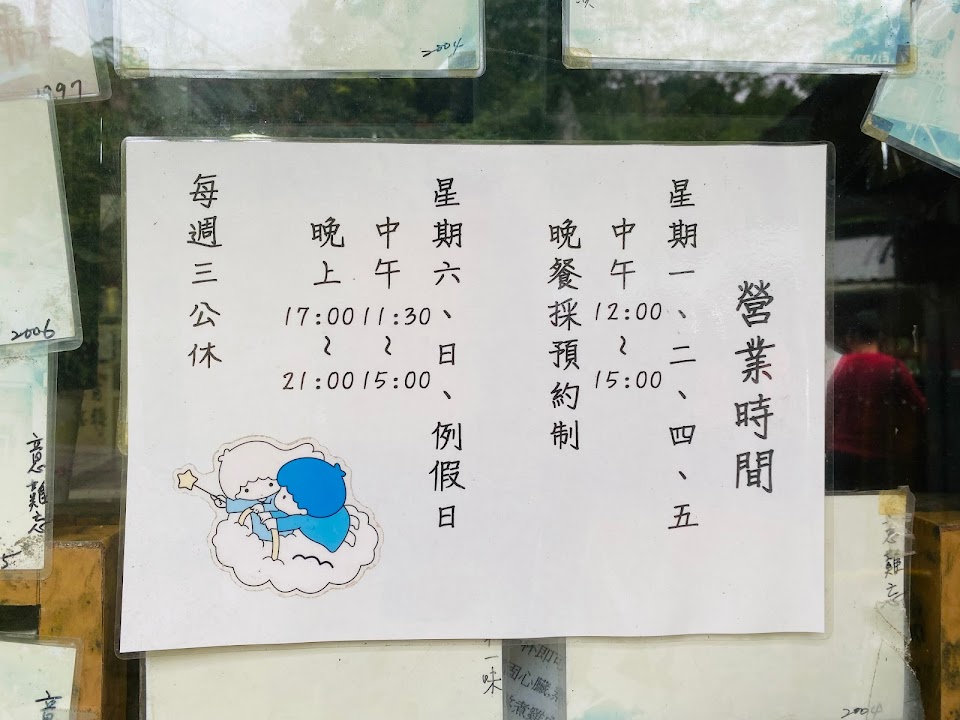 營業時間
星期一、二、四、五
中午
12:00
~
15:00
晚餐採預約制
星期六、日、例假日
中午
11:30
~
15:00
晚上
17:00
~
21:00
每週三公休
2004
1997
2006
意難忘
5
意難忘
一味
2004
意